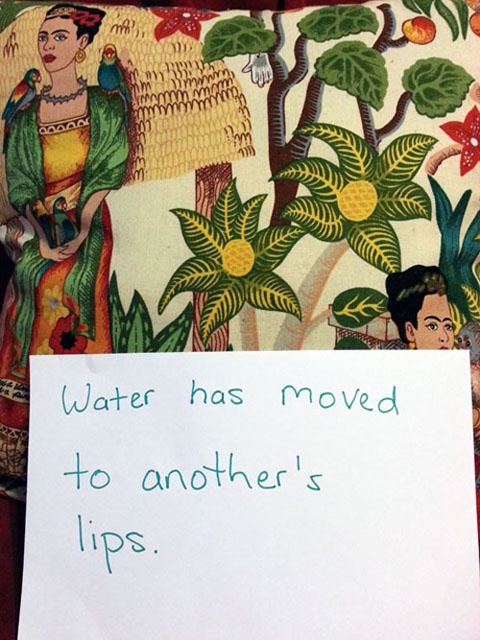 Water has moved
to another's
lips.